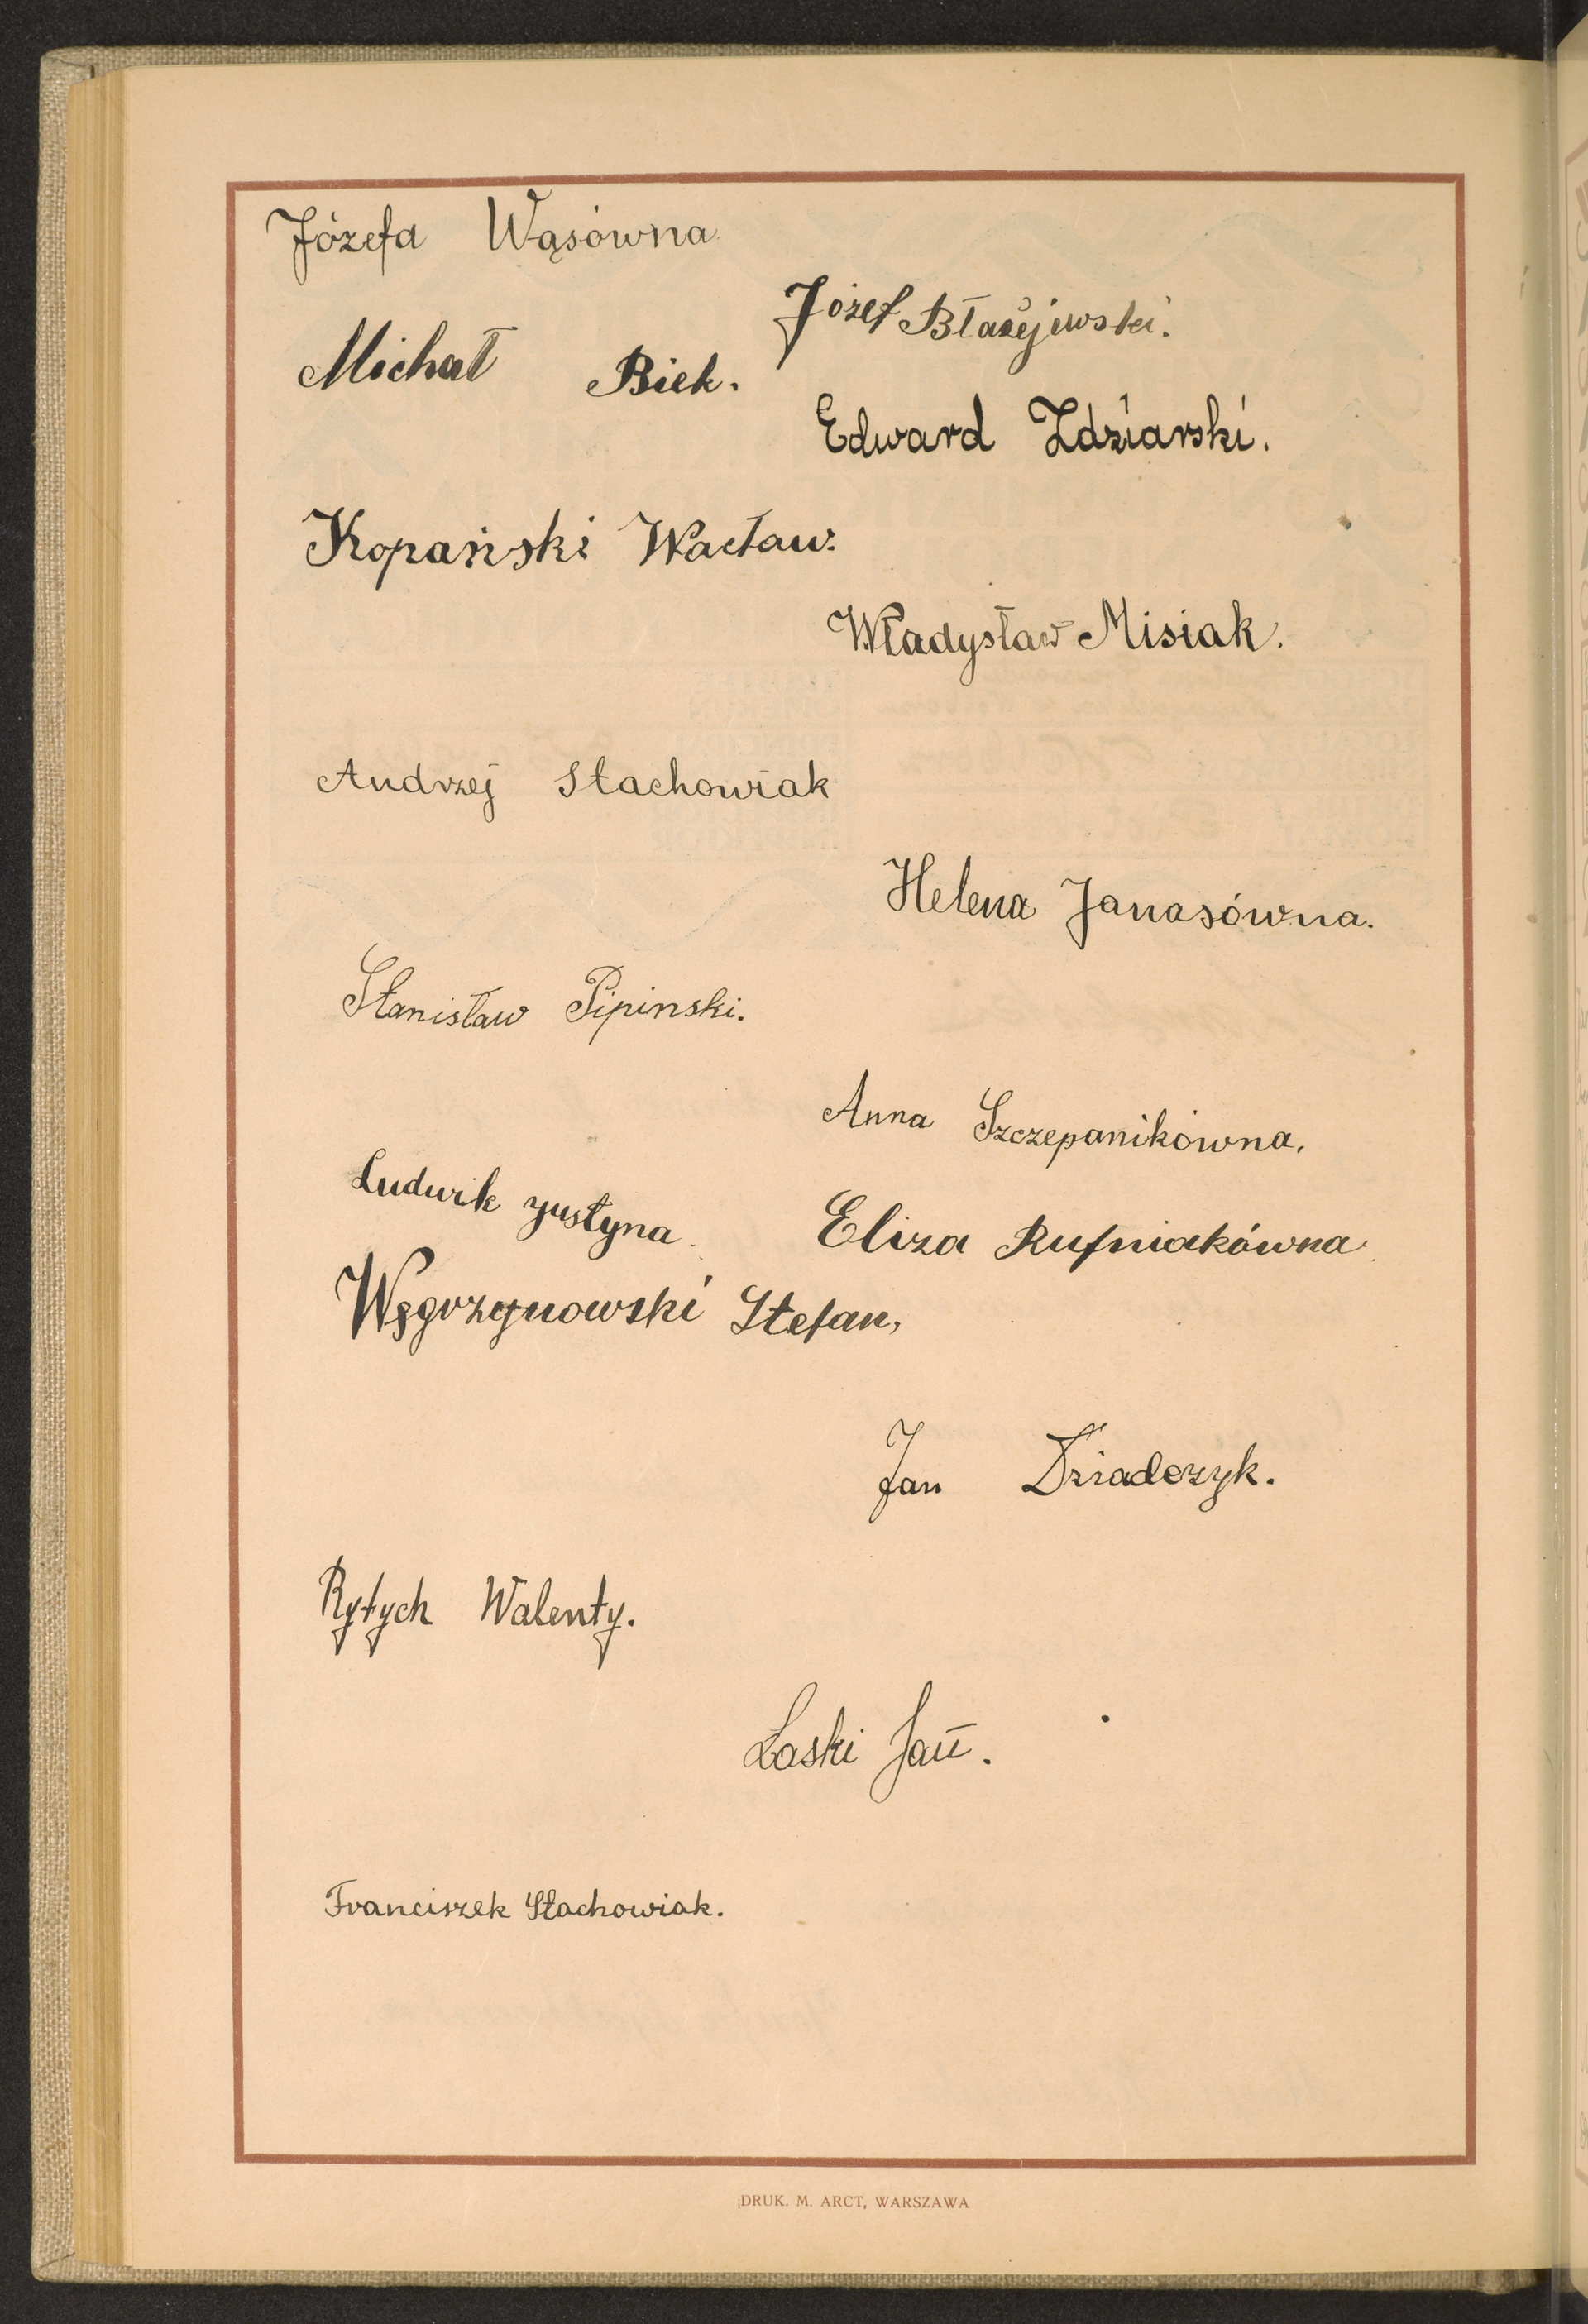 Józefa Wąsówna
Józef Błażejewski.
Michał Biek.
Edward Zdziarski.
Kopański Wacław.
Władysław Misiak.
Andrzej Stachowiak
Helena Janasówna.
Stanisław Pipinski.
Anna Szczepanikówna.
Ludwik Justyna.
Eliza Rufniakówna.
Węgrzynowski Stefan,
Jan Dziadczyk.
Rytych Walenty.
Laski Jan.
Franciszek Stachowiak.
DRUK. M. ARCT, WARSZAWA